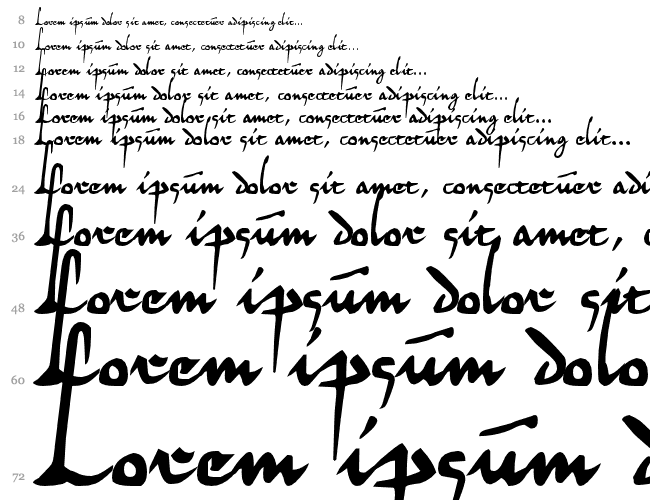 8 Lorem ipsūm dolor sit amet, consectetūer adipiscing elit...
10 Lorem ipsūm dolor sit amet, consectetūer adipiscing elit...
12 Lorem ipsūm dolor sit amet, consectetūer adipiscing elit...
14 Lorem ipsūm dolor sit amet, consectetūer adipiscing elit...
16 Lorem ipsūm dolor sit amet, consectetūer adipiscing elit...
18 Lorem ipsūm dolor sit amet, consectetūer adipiscing elit...
24 Lorem ipsūm dolor sit amet, consectetūer adi
36 Lorem ipsūm dolor sit amet, c
48 Lorem ipsūm dolor sit
60 Lorem ipsūm dolo
72 Lorem ipsūm d